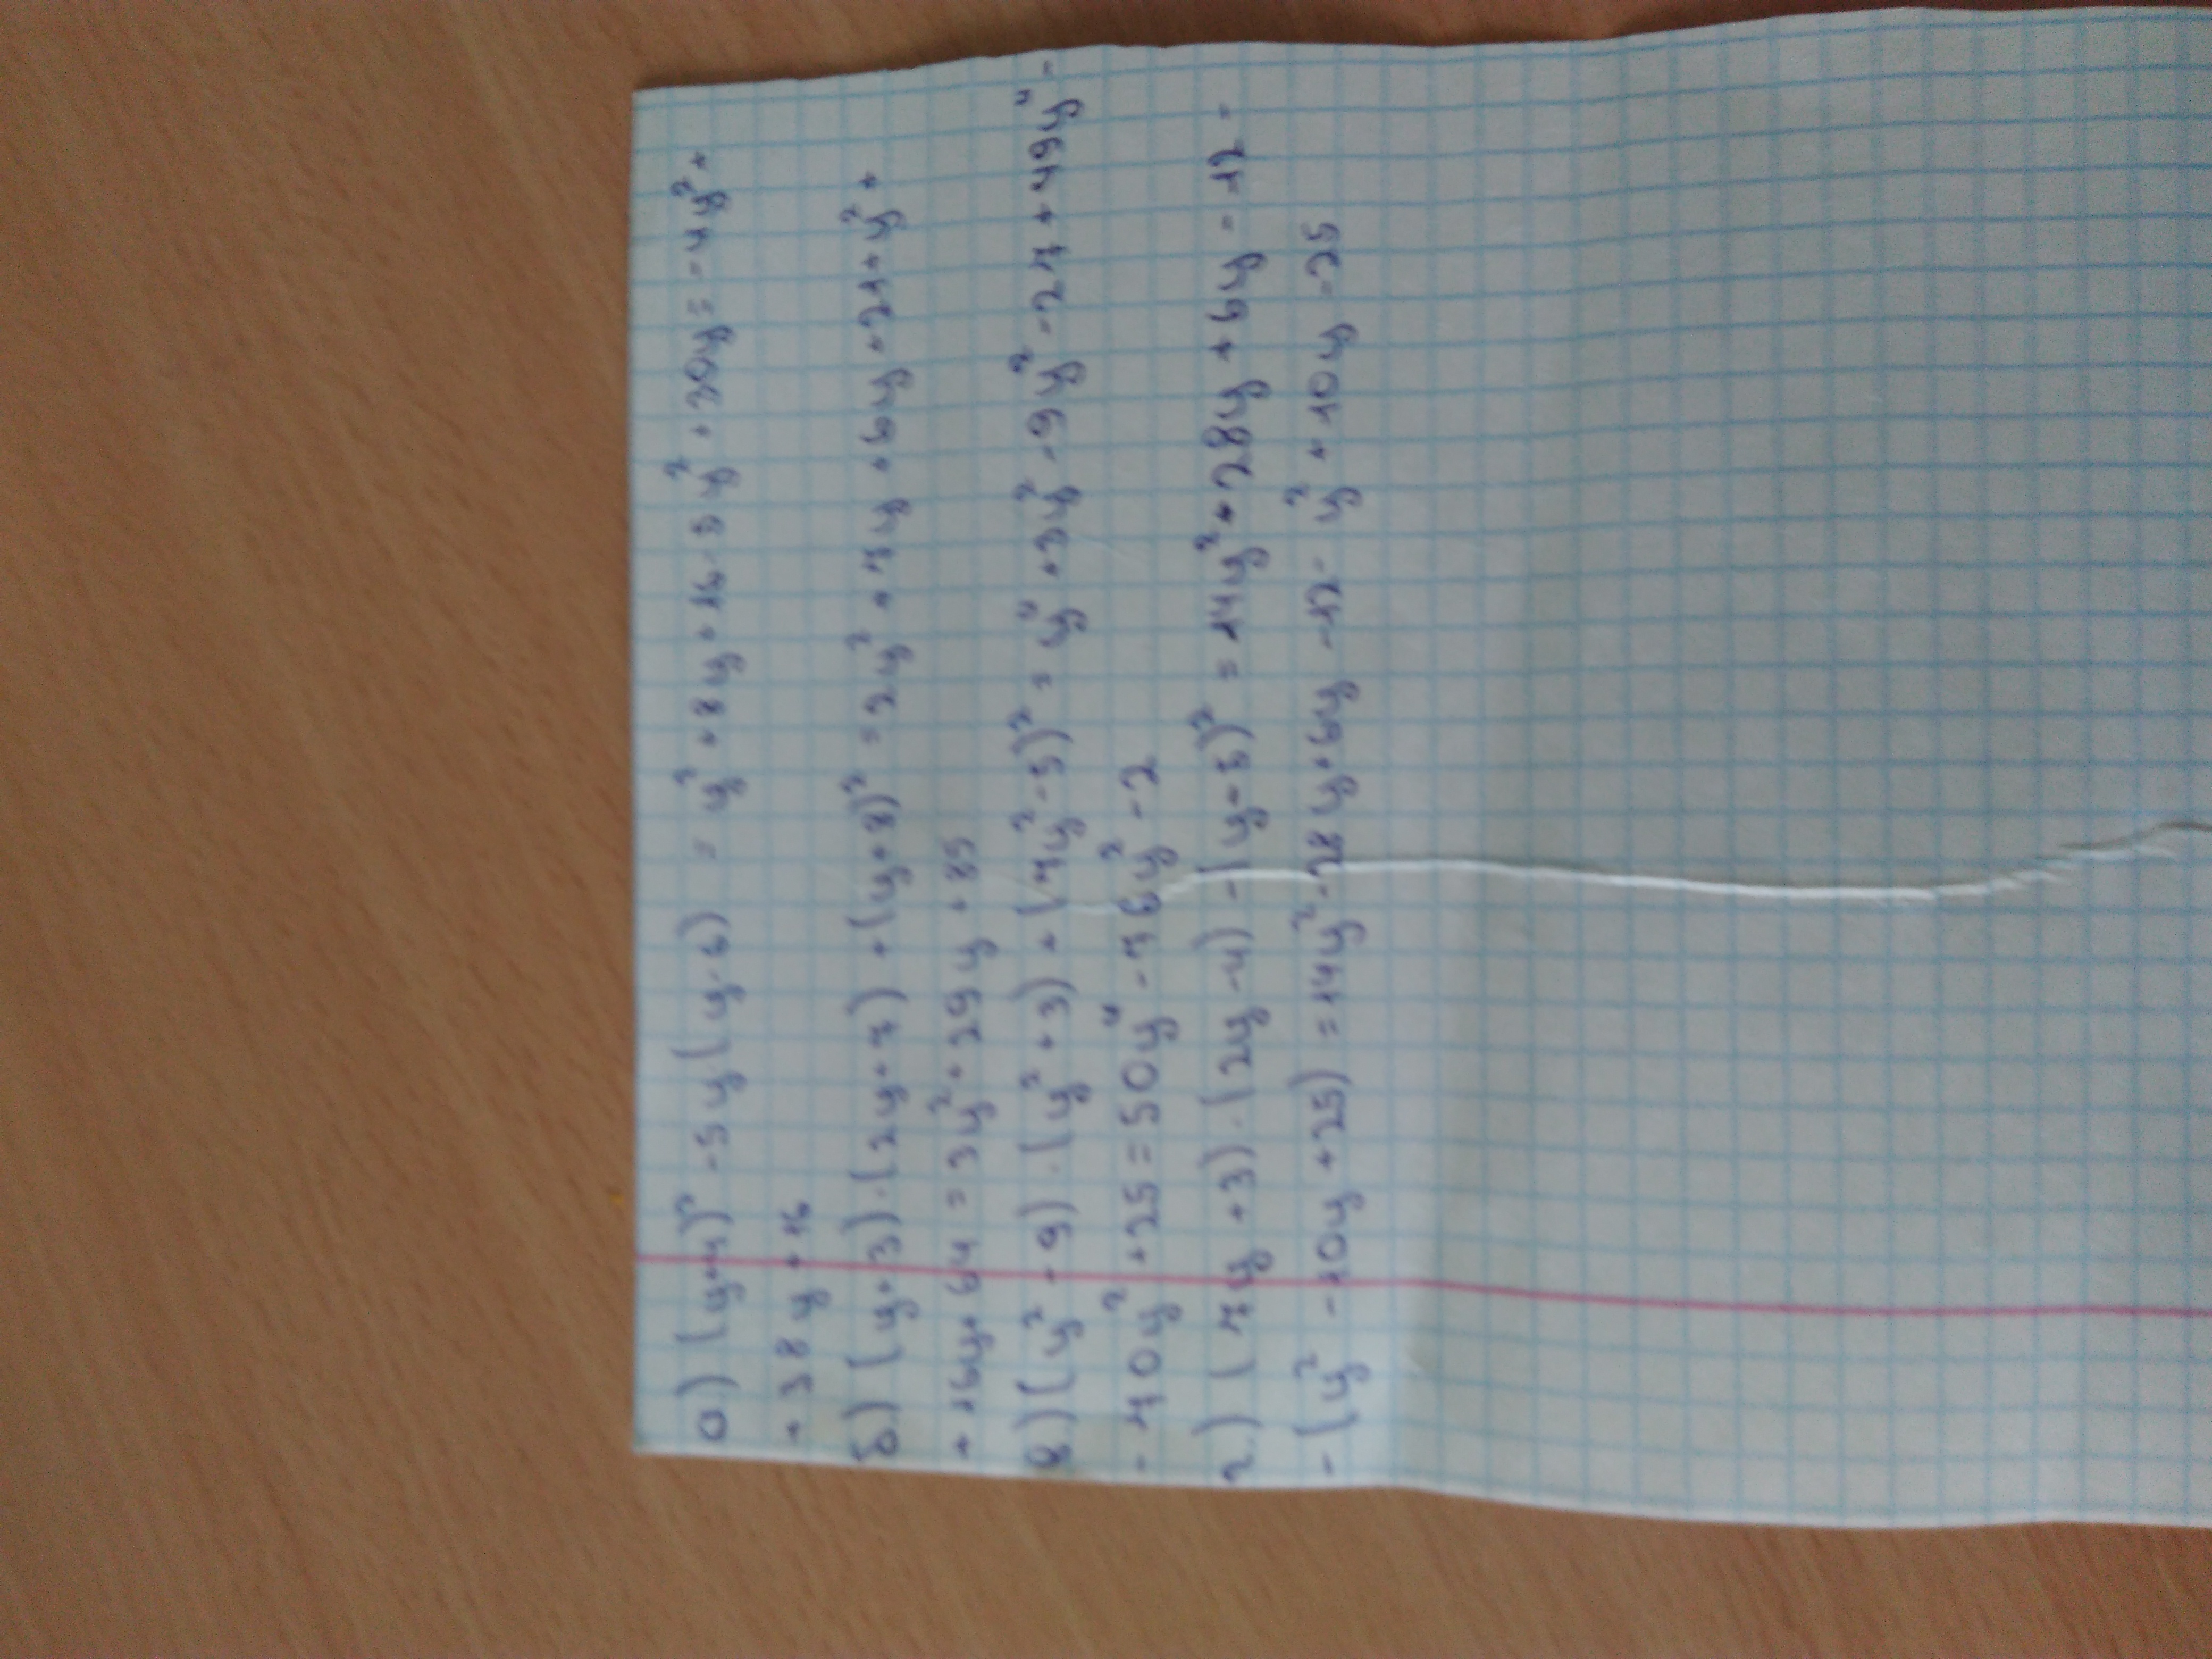 а) (y+4)² -5y(y-6) = y² +8y+16-5y² +30y = -4y² +
+38y+16
б) (y+3)·(2y+7) +(y+8)² = 2y² +7y +6y +21+y² +
+16y+64 = 3y² +29y +85
в) (y² -9)·(y² +3) + (7y² -5)² = y⁴ +3y² -9y² -27 +49y⁴ -
-70y² +25 = 50y⁴ -76y² -2
г) (7y +3)·(2y -4) -(y-5)² = 14y² +28y +6y -12 -
-(y² -10y +25) = 14y² -28y+6y -12- y² +10y -25